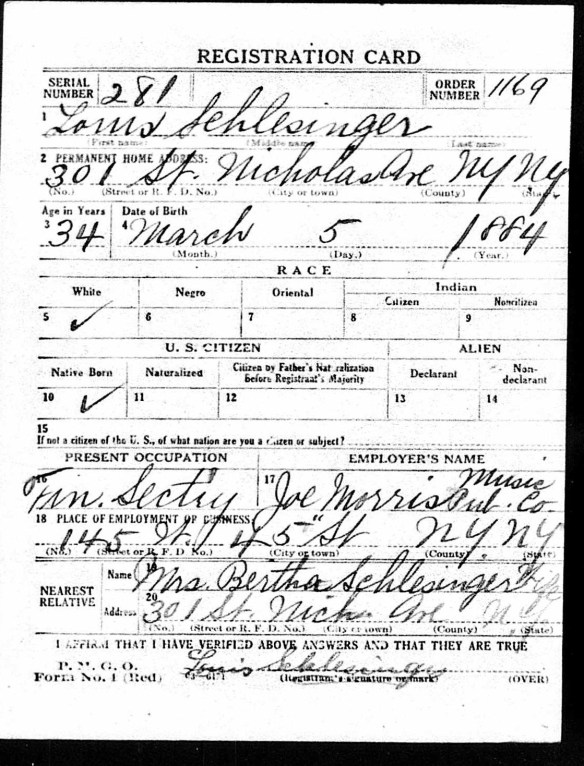 REGISTRATION CARD
SERIAL NUMBER 281 ORDER NUMBER 1169
1 Louis Schlesinger
(First name) (Middle name) (Last name)
2 PERMANENT HOME ADDRESS:
301 St. Nicholas Ave NY NY
(No.) (Street or R. F. D. No.) (City or town) (County) (State)
Age in Years Date of Birth
3 34 4 March 5 1884
(Month.) (Day.) (Year.)
RACE
White Negro Oriental Indian
Citizen Noncitizen
5 ✓ 6 7 8 9
U. S. CITIZEN ALIEN
Native Born Naturalized Citizen by Father's Naturalization Before Registrant's Majority Declarant Non-declarant
10 ✓ 11 12 13 14
15
If not a citizen of the U. S., of what nation are you a citizen or subject?
PRESENT OCCUPATION EMPLOYER'S NAME
16 Fin. Sectry 17 Joe Morris Music Pub. Co.
18 PLACE OF EMPLOYMENT OR BUSINESS:
145 W. 45" St NY NY
(No.) (Street or R. F. D. No.) (City or town) (County) (State)
NEAREST RELATIVE Name 19 Mrs. Bertha Schlesinger
Address 20 301 St. Nich. Ave N.Y.
(No.) (Street or R. F. D. No.) (City or town) (County) (State)
I AFFIRM THAT I HAVE VERIFIED ABOVE ANSWERS AND THAT THEY ARE TRUE
P. M. G. O.
Form No. 1 (Red) Louis Schlesinger
(Registrant's signature or mark) (OVER)